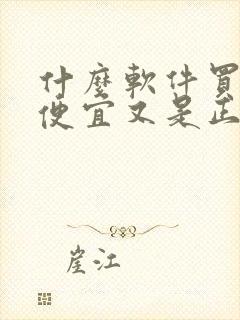 什麼軟件買
便宜又是正
崖江